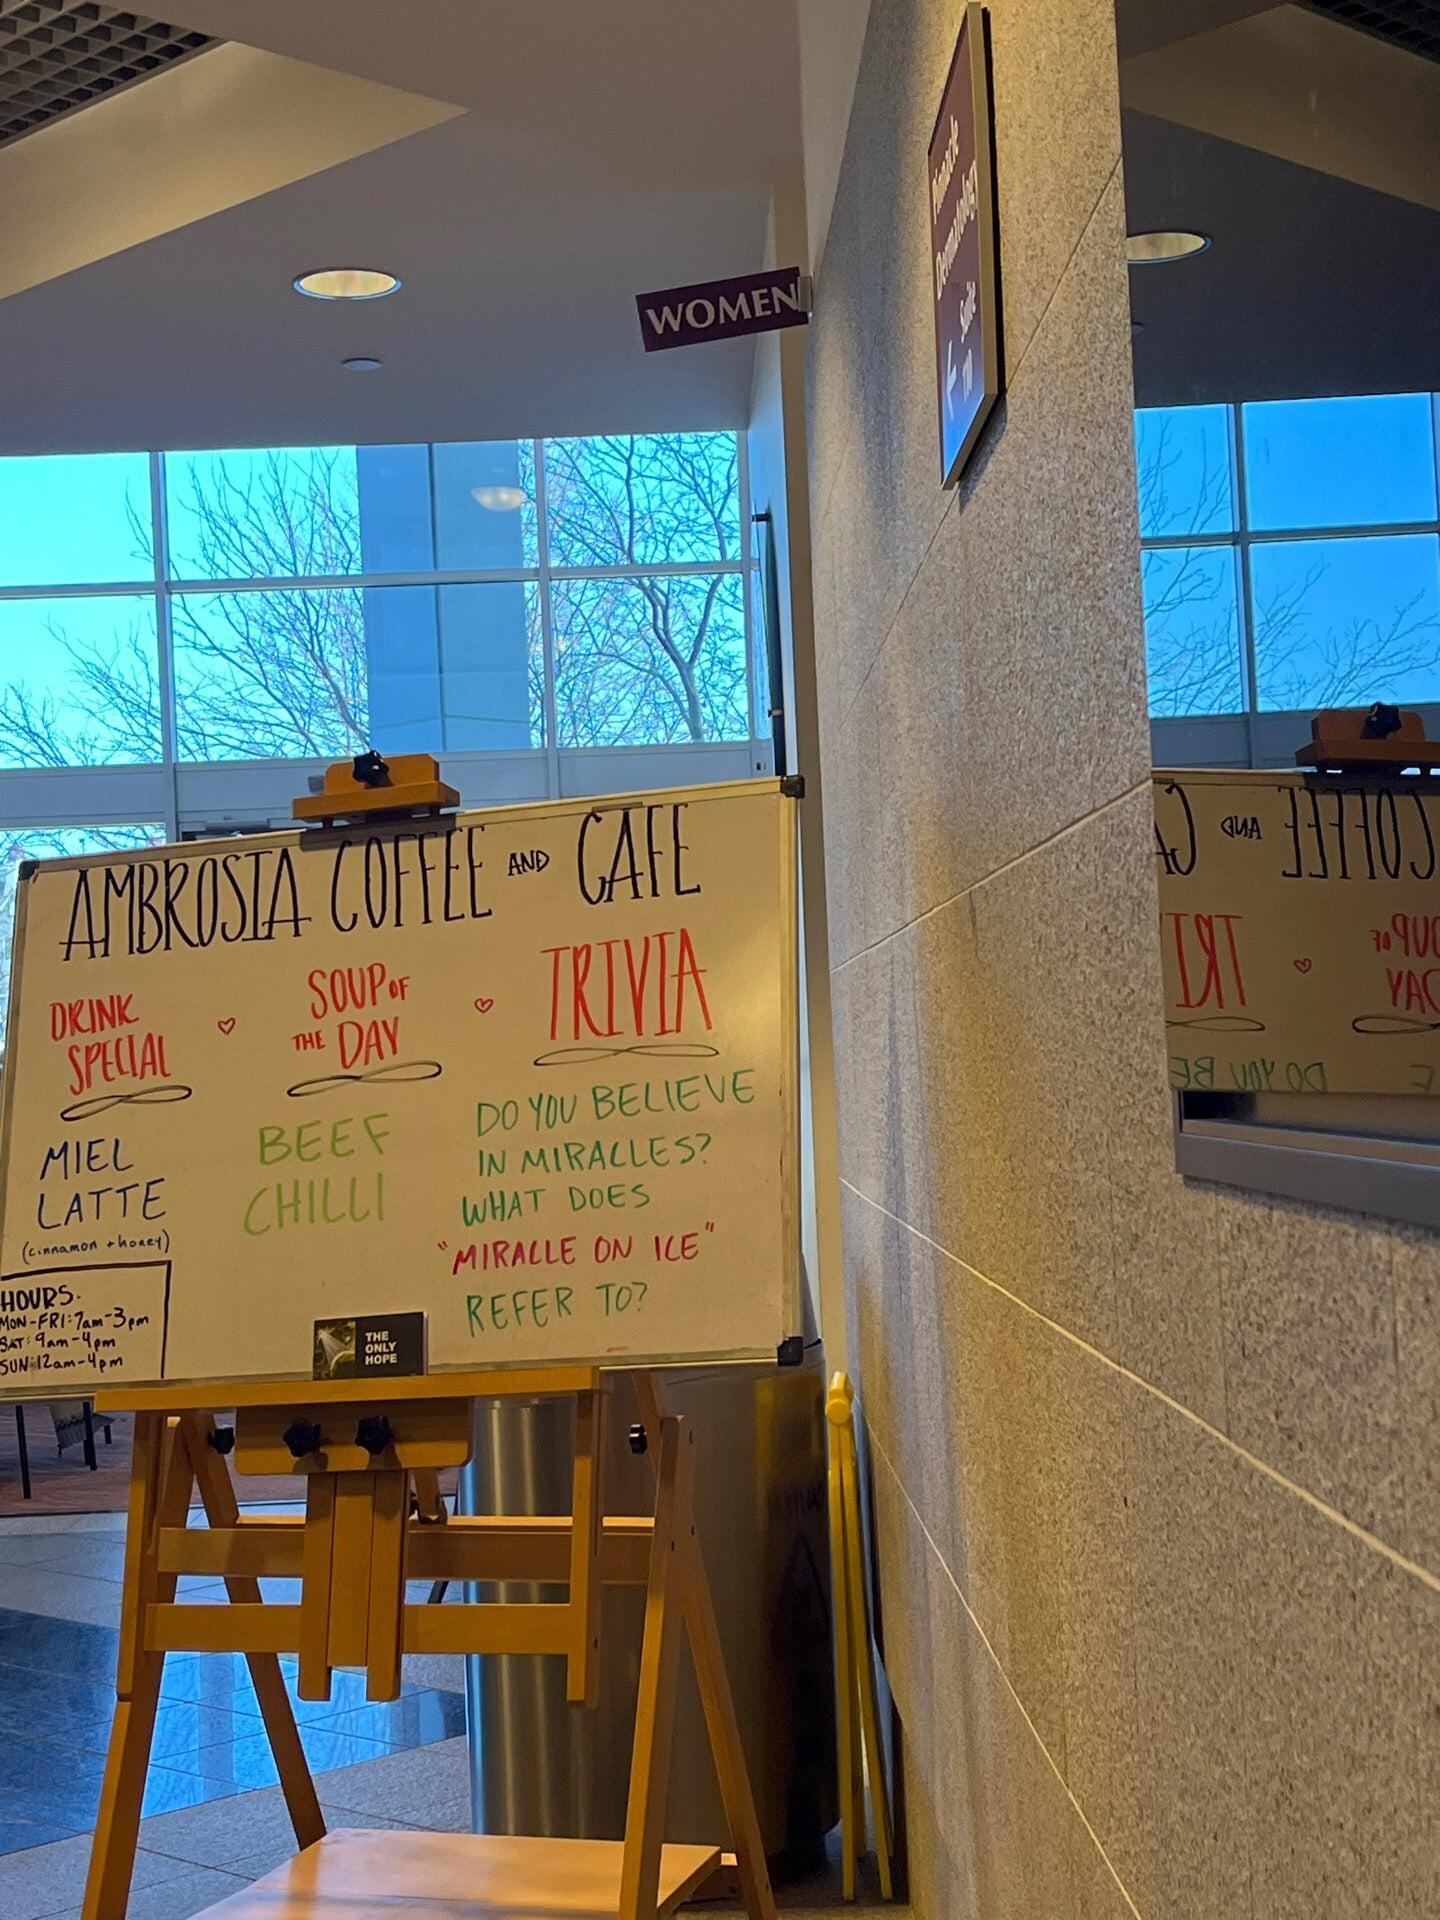 Pinnacle
Dermatology
Suite
← 170
WOMEN
AMBROSIA COFFEE AND CAFE
DRINK
SPECIAL
♡
SOUP OF
THE DAY
♡
TRIVIA
MIEL
LATTE
(cinnamon + honey)
BEEF
CHILLI
DO YOU BELIEVE
IN MIRACLES?
WHAT DOES
"MIRACLE ON ICE"
REFER TO?
HOURS.
MON-FRI: 7am-3pm
SAT: 9am-4pm
SUN: 12am-4pm
THE
ONLY
HOPE